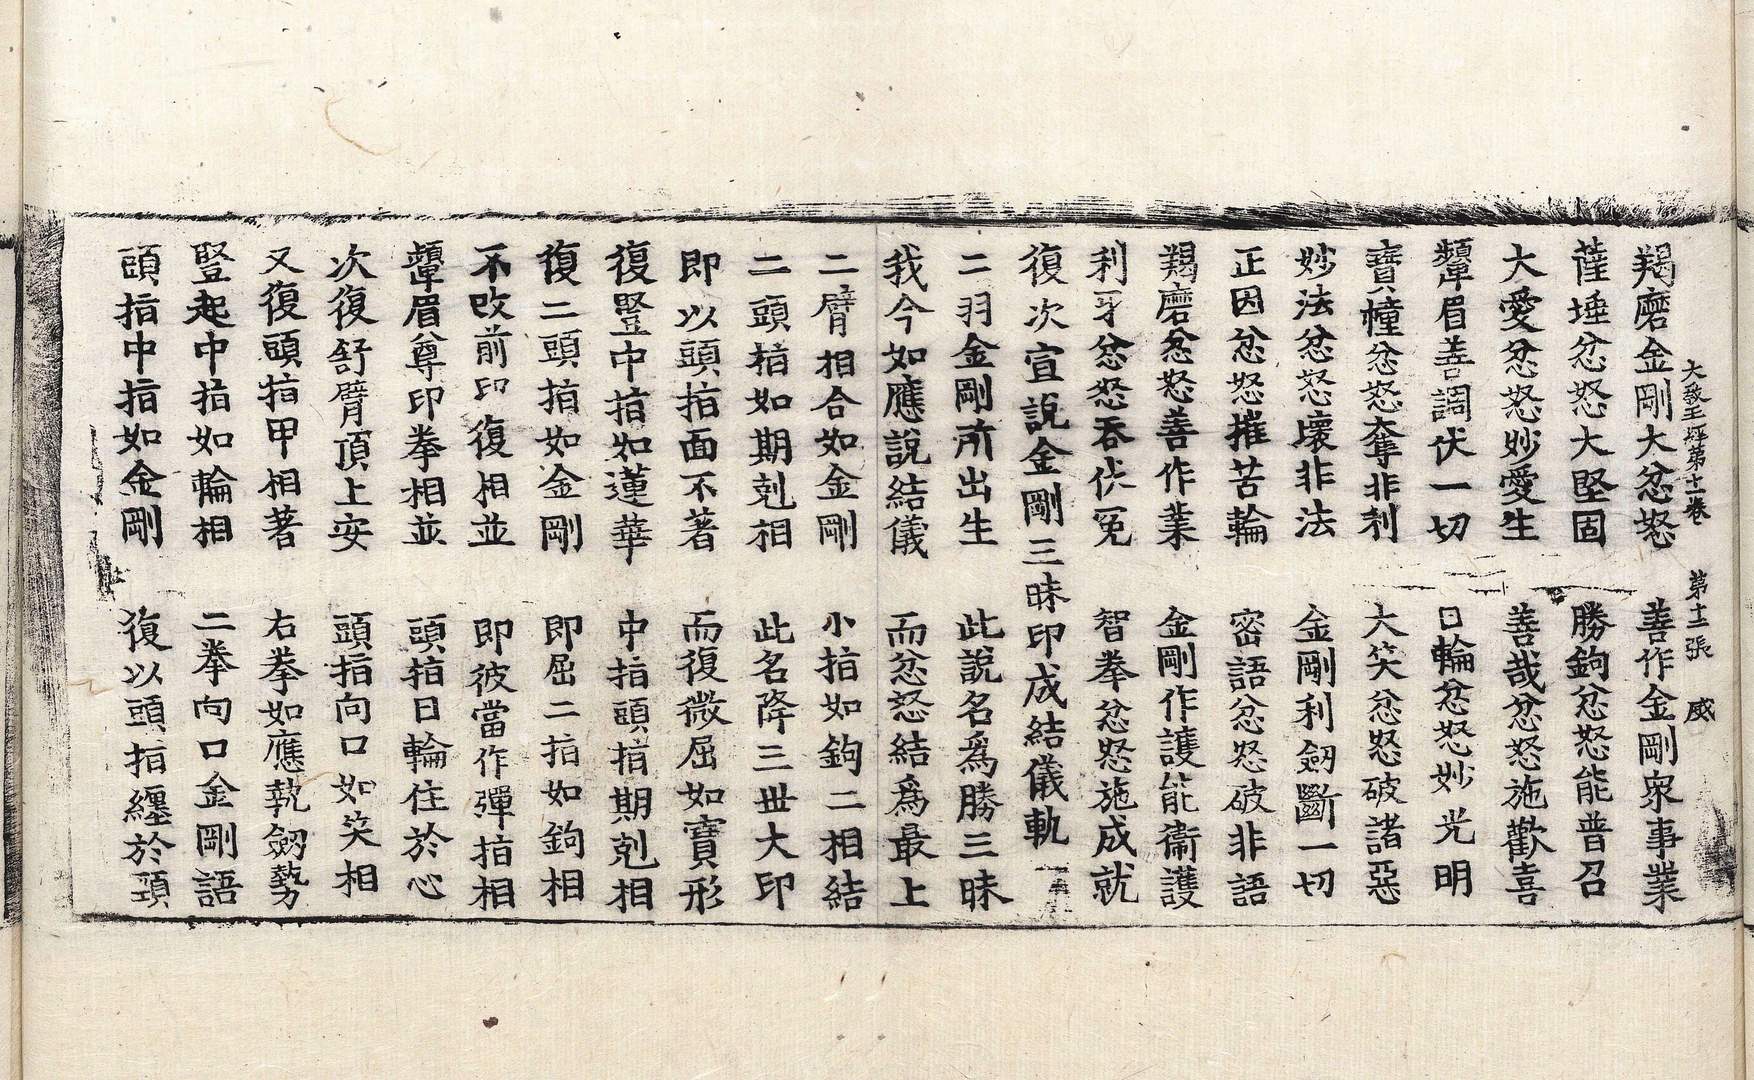 大教王經第十一卷 第十二張 威
羯磨金剛大忿怒 善作金剛衆事業
薩埵忿怒大堅固 勝鉤忿怒能普召
大愛忿怒妙愛生 善哉忿怒施歡喜
顰眉善調伏一切 日輪忿怒妙光明
寶幢忿怒奪非利 大笑忿怒破諸惡
妙法忿怒壞非法 金剛利劒斷一切
正因忿怒摧苦輪 密語忿怒破非語
羯磨忿怒善作業 金剛作護能衞護
利牙忿怒吞伏冤 智拳忿怒施成就
復次宣說金剛三昧印成結儀軌
二羽金剛所出生 此說名爲勝三昧
我今如應說結儀 而忿怒結爲最上
二臂相合如金剛 小指如鉤二相結
二頭指如期剋相 此名降三世大印
即以頭指面不著 而復微屈如寶形
復豎中指如蓮華 中指頭指期剋相
復二頭指如金剛 即屈二指如鉤相
不改前印復相並 即彼當作彈指相
顰眉尊印拳相並 頭指日輪住於心
次復舒臂頂上安 頭指向口如笑相
又復頭指甲相著 右拳如應執劒勢
豎起中指如輪相 二拳向口金剛語
頭指中指如金剛 復以頭指纏於頸